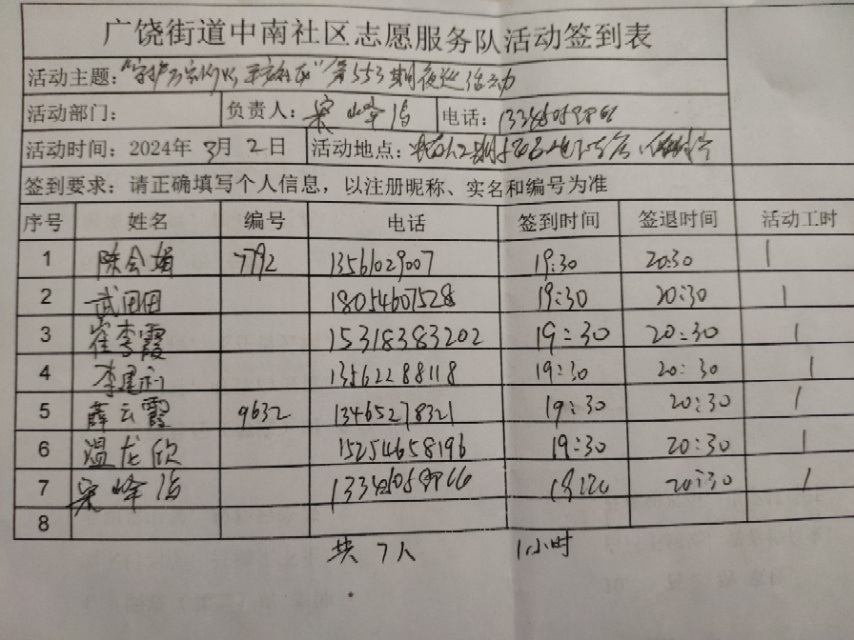 广饶街道中南社区志愿服务队活动签到表
活动主题：“守护万家灯火 平安社区”第553期夜巡活动
活动部门： 负责人：宋峰治 电话：
活动时间：2024年 3月 2日 活动地点：
签到要求：请正确填写个人信息，以注册昵称、实名和编号为准
序号 姓名 编号 电话 签到时间 签退时间 活动工时
1 陈会娟 7792 13561029007 19:30 20:30 1
2 武田田 18054607528 19:30 20:30 1
3 崔李霞 15318383202 19:30 20:30 1
4 李建利 13562288118 19:30 20:30 1
5 薛云霞 9632 13465278321 19:30 20:30 1
6 温龙欣 15254658196 19:30 20:30 1
7 宋峰治 20:30 1
8
共7人 1小时